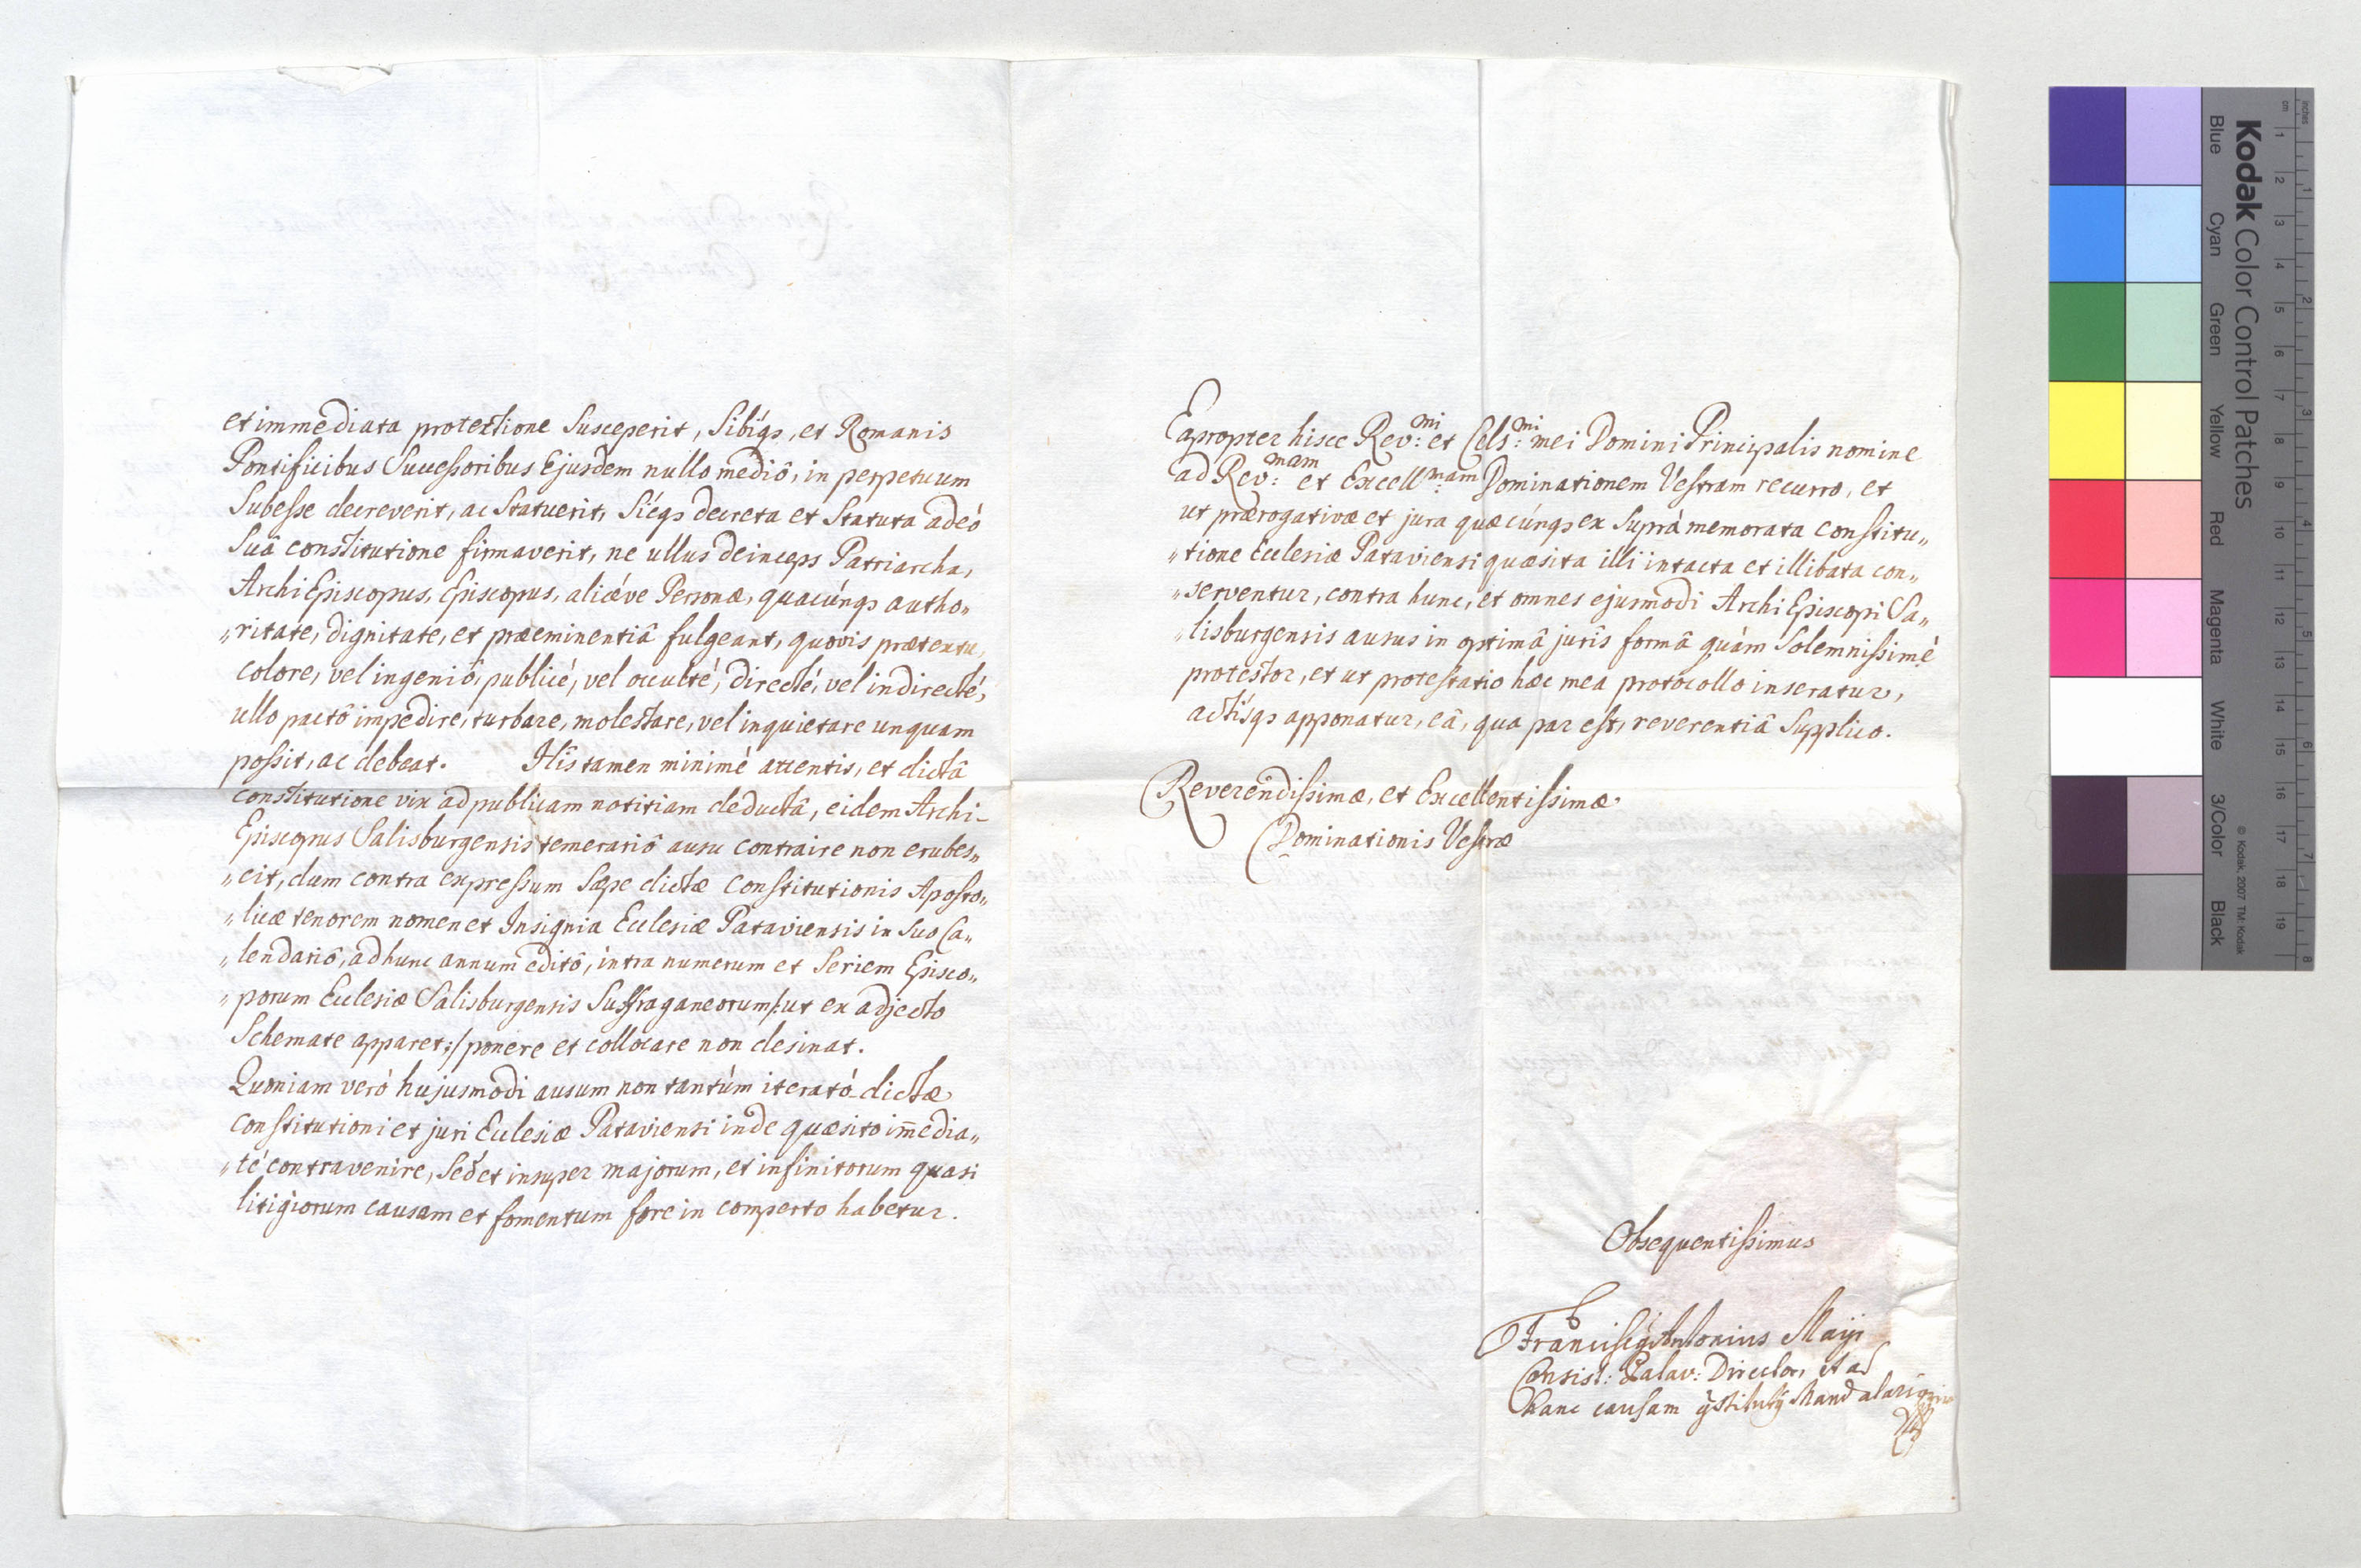 et immediata protectione Susceperit, Sibíqs, et Romanis
Pontificibus Successoribus Ejusdem nullo mediô, in perpetuum
Subesse decreverit, ac Statuerit, Sícqs decreta et Statuta adeó
Suâ constitutione firmaverit, ne ullus deinceps Patriarcha,
ArchiEpiscopus, Episcopus, aliǽve Personæ, quacúnqs autho„
„ritate, dignitate, et præeminentiâ fulgeant, quovis prætextu,
colore, vel ingeniô, publicé, vel occulté, directé, vel indirecté,
ullo pactô impedire, turbare, molestare, vel inquietare unquam
possit, ac debeat. His tamen minimè attentis, et dictâ
constitutione vix ad publicam notitiam deductâ, eidem Archi-
Episcopus Salisburgensis temerariô ausu contraire non erubes„
„cit, dum contra expressum Sæpe dictæ Constitutionis Aposto„
„licæ tenorem nomen et Insignia Ecclesiæ Pataviensis in Suo Ca„
„lendariô, ad hunc annum editô, intra numerum et Seriem Episco„
„porum Ecclesiæ Salisburgensis Suffraganeorum /: ut ex adjecto
Schemate apparet :/ ponere et collocare non desinat.
Quoniam veró hujusmodi ausum non tantúm iterató dictæ
constitutioni et juri Ecclesiæ Pataviensi inde quæsito im̄edia„
„té contravenire, Sed et insuper majorum, et infinitorum quasi
litigiorum causam et fomentum fore in comperto habetur.
Eapropter hisce Rev:mi et Cels:mi mei Domini Principalis nomine
ad Rev:mam et Excell:mam Dominationem Vestram recurro, et
ut prærogativæ et jura quæcúnqs ex Suprà memorata constitu„
„tione Ecclesiæ Pataviensi quæsita illi intacta et illibata con„
„serventur, contra hunc, et omnes ejusmodi ArchiEpiscopi Sa„
„lisburgensis ausus in optimâ juris formâ quàm Solemnissimè
protestor, et ut protestatio hæc mea protocollo inseratur,
actísqs apponatur, eâ, qua par est, reverentiâ Supplico.
Reverendissimæ, et Excellentissimæ
Dominationis Vestræ
Obsequentissimus
Antonius Mayr
Consist: Patav: Director, et ad
hanc causam